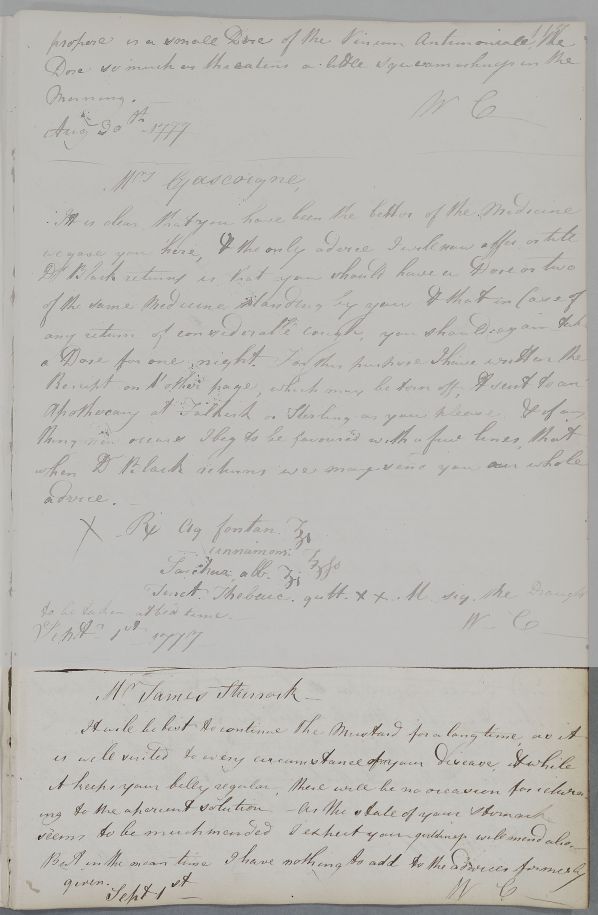 propose is a small Dose of the Vinum Antimoniale. The
Dose so much as the eating a little squeamishness in the
Morning.
W C
Aug 30th 1777
Mrs Gascoigne,
It is clear that you have been the better of the Medicine
we gave you here, & the only advice I will now offer, or till
Dr Black returns is that you should have a Dose or two
of the same Medicine standing by you & that in Case of
any return of considerable cough, you should again take
a Dose for one night. For this purpose I have written the
Receipt on t'other page, which may be torn off, & sent to an
Apothecary at Falkirk or Sterling as you please. & if any
thing new occurs I beg to be favoured with a few lines, that
when Dr Black returns we may send you our whole
advice.
X Rx Aq fontan. ℥i
cinnamom. ℥ſs
Sacchar. alb. ʒi
Tinct. Thebaic. gutt. x x. M. sig. the Draught
to be taken at bed time.
Septr 1st 1777
W C
Mr James Sturrock
It will be best to continue the Mustard for a long time, as it
is well suited to every circumstance of your Disease, & while
it keeps your belly regular, there will be no occasion for return-
ing to the aperient solution - As the state of your stomach
seems to be much mended I expect your giddiness will mend also
But in the mean time I have nothing to add to the advices formerly
given.
Sept 1st
W C